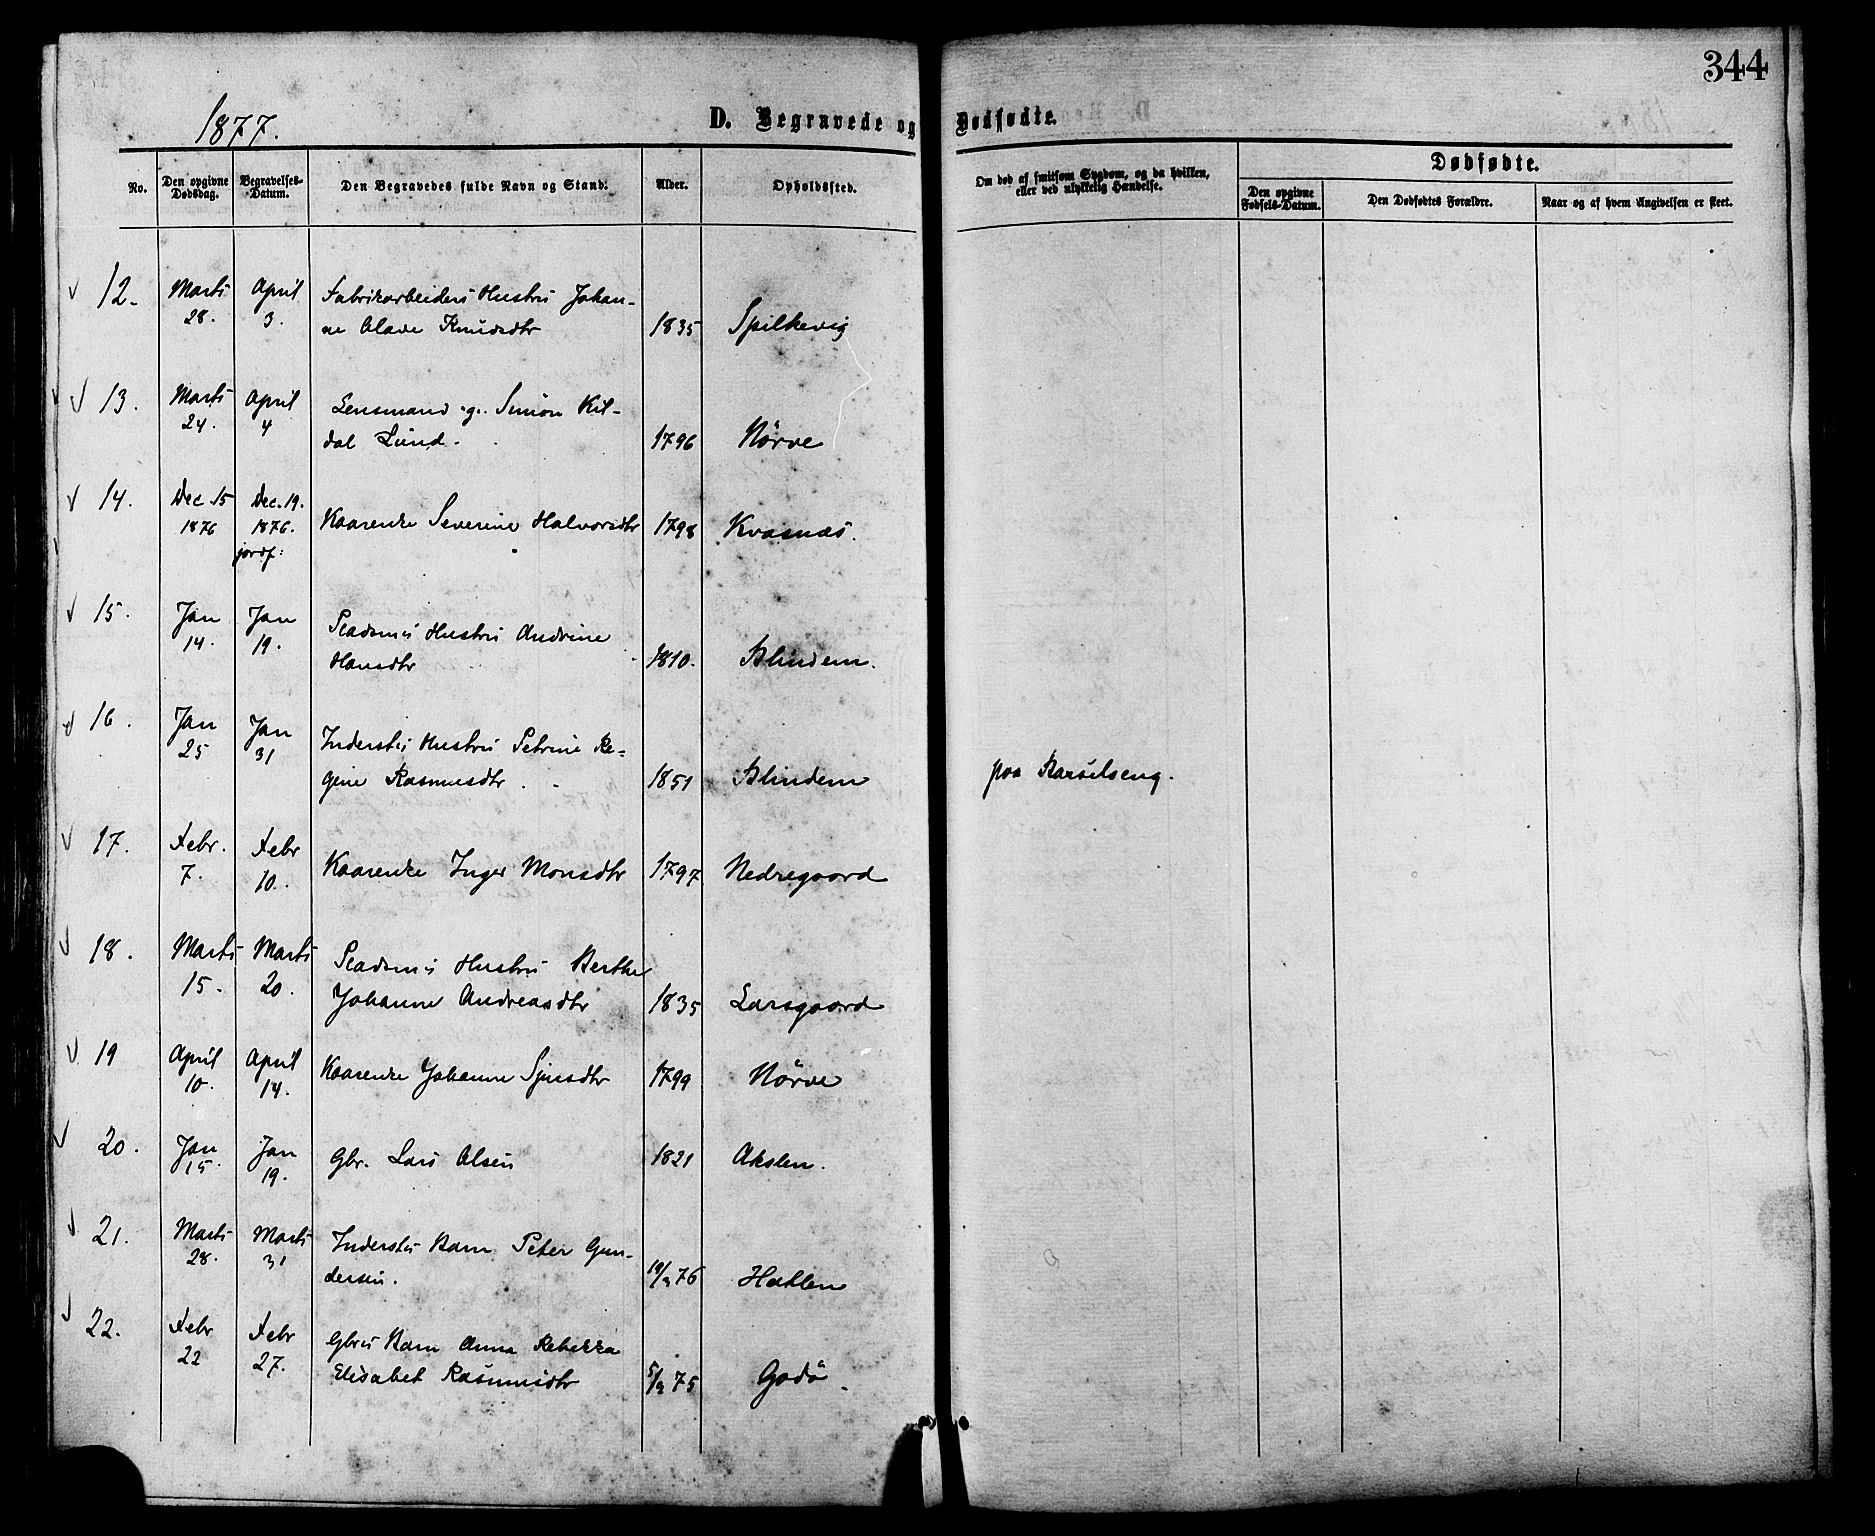 344
1877.
D. Begravede og Dødfødte.
No.
Den opgivne Dødsdag.
Begravelses-Datum.
Den Begravedes fulde Navn og Stand.
Alder.
Opholdssted.
Om død af smitsom Sygdom, og da hvilken,
eller ved ulykkelig Hændelse.
Dødfødte.
Den opgivne Fødsels-Datum.
Den Dødfødtes Forældre.
Naar og af hvem Angivelsen er skeet.
12. Marts 28. April 3. Fabrikarbeiders Hustru Johan-
ne Olave Knudsdtr 1835 Spilkevig
13. Marts 24. April 4 Lensmand g. Simon Kil-
dal Lund. 1796 Nörve
14. Dec. 15 1876 Dec. 19. 1876. jordf: Kaarenke Severine Halvorsdtr 1798 Kvasnæs.
15. Jan 14. Jan 19. Pladsms Hustru Andrine
Hansdtr 1810. Blindem.
16. Jan 25 Jan 31 Inderstes Hustru Petrine Re-
gine Rasmusdtr. 1851 Blindem paa Barselseng.
17. Febr. 7. Febr 10. Kaarenke Inger Monsdtr 1797 Nedregaard
18. Marts 15. Marts 20. Pladsms Hustru Berthe
Johanne Andreasdtr 1835 Larsgaard
19 April 10. April 14. Kaarenke Johanne 1799 Nörve
20. Jan 15. Jan 19. Gbr. Lars Olsen 1821 Akslen.
21. Marts 28. Marts 31 Inderstes Barn Peter Gun-
dersen. 76 Hatlen
22. Febr 22 Febr 27. Gbrs Barn Anna Rebekka
Elisabet Rasmusdtr 75 Godö.